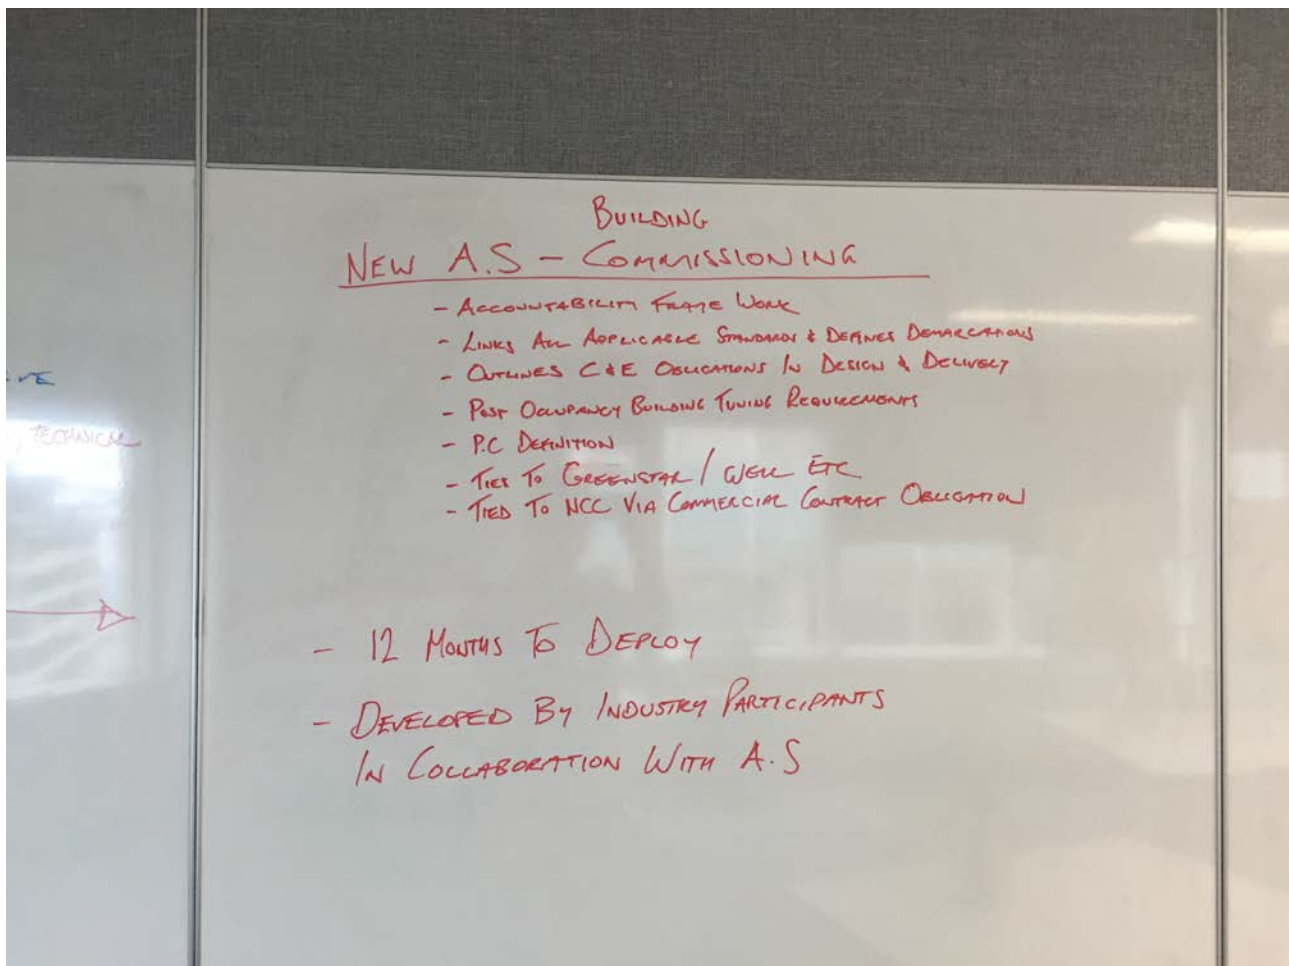 BUILDING
NEW A.S - COMMISSIONING
- ACCOUNTABILITY FRAME WORK
- LINKS ALL APPLICABLE STANDARDS & DEFINES DEMARCATIONS
- OUTLINES C&E OBLIGATIONS IN DESIGN & DELIVERY
- POST OCCUPANCY BUILDING TUNING REQUIREMENTS
- P.C DEFINITION
- TIES TO GREENSTAR / WELL ETC
- TIED TO NCC VIA COMMERCIAL CONTRACT OBLIGATION
TECHNICAL
- 12 MONTHS TO DEPLOY
- DEVELOPED BY INDUSTRY PARTICIPANTS
IN COLLABORATION WITH A.S